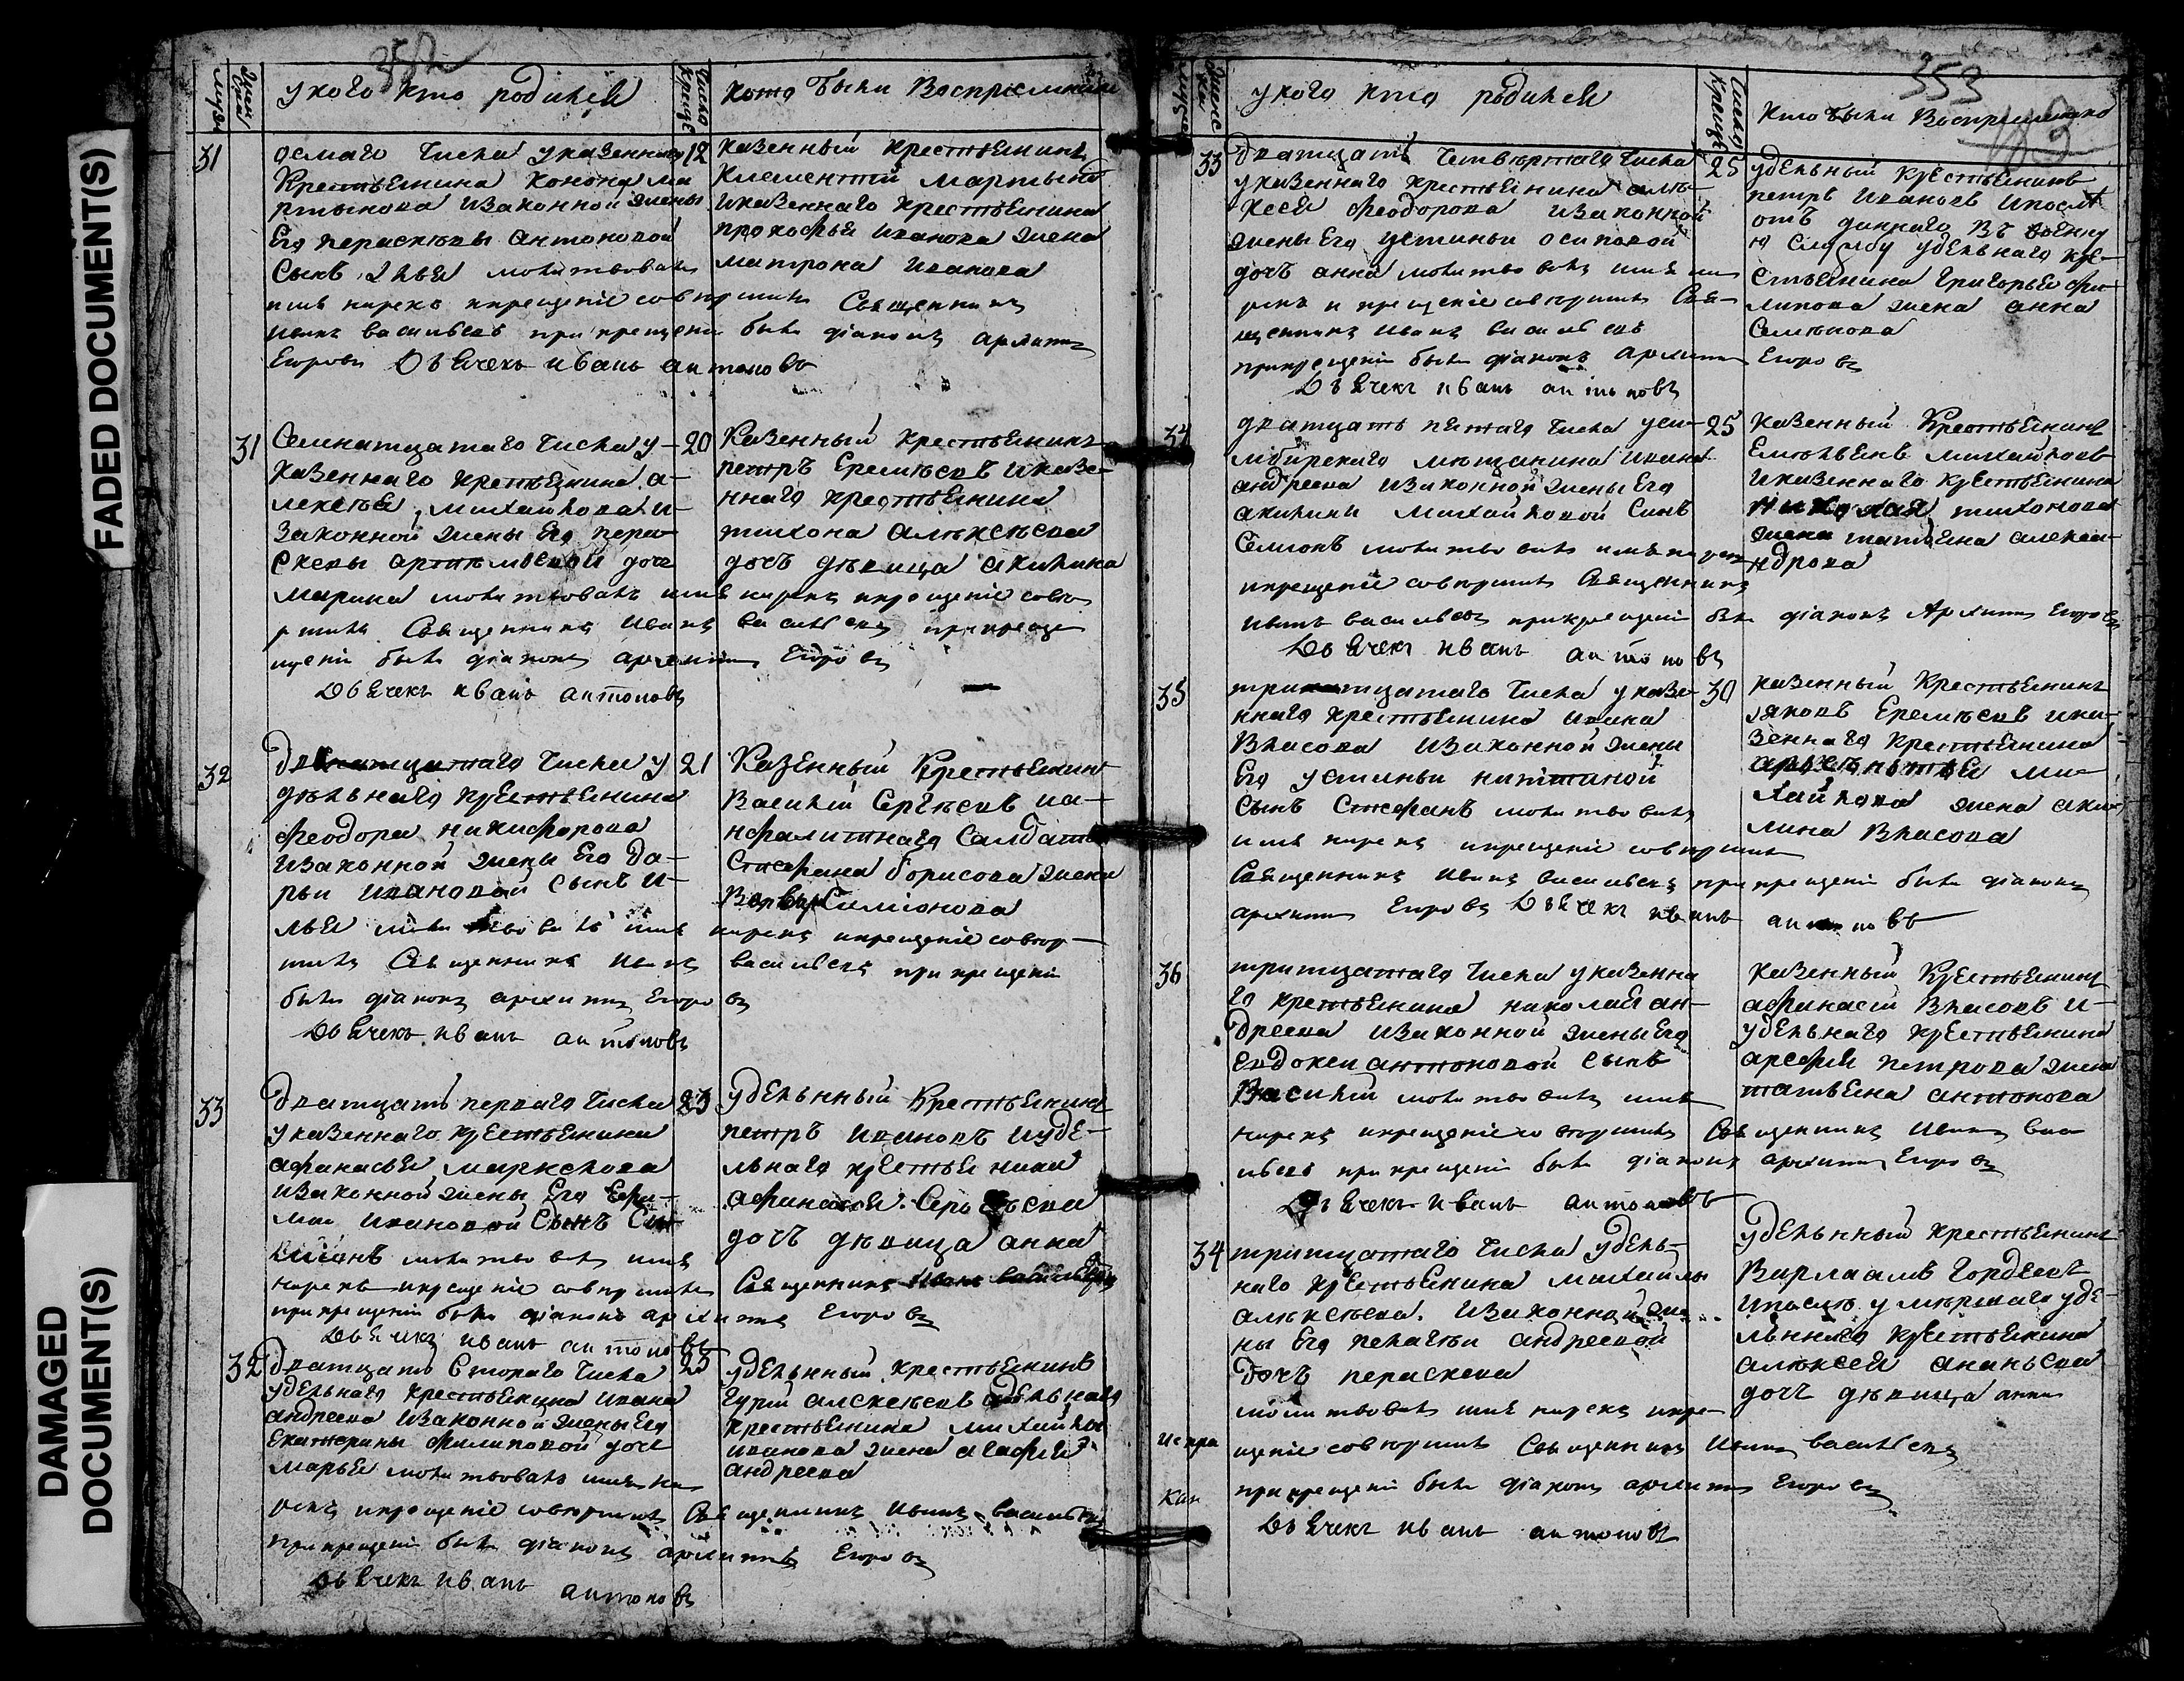 FADED DOCUMENT(S)
DAMAGED
DOCUMENT(S)
352
у кого кто родился
число креще
кто были Восприемники
31
осмаго числа у казеннаго
крестьянина Конона Ма
ртынова изаконной жены
Его параскевы антоновой
Сынъ
молитвовалъ
имя нарекъ икрещение совершилъ Священникъ
иванъ васильевъ при крещении былъ диаконъ архипъ
Егоровъ Дьячекъ иванъ антоновъ
12
казенный крестьянинъ
Климентий мартыновъ
иказеннаго крестьянина
прокофья иванова жена
матрона иванова
31
Семнатцатаго числа у-
казеннаго крестьянина а-
лексея михайлова и-
законной жены Его пара-
скевы артемьевой дочь
марина молитвовалъ имя нарекъ икрещение сове-
ршилъ Священникъ иванъ васильевъ при креще
щении былъ диаконъ архипъ Егоровъ
Дьячекъ иванъ антоновъ
20
Казенный крестьянинъ
петръ Еремеевъ иказе-
ннаго крестьянина
тихона алексеева
дочь девица акилина
32
числа у
дельнаго крестьянина
феодора никифорова
изаконной жены Его да-
рьи ивановой сынъ и-
лья молитвовалъ имя нарекъ икрещение совер-
шилъ Священникъ иванъ васильевъ при крещении
былъ диаконъ архипъ Егоровъ
Дьячекъ иванъ антоновъ
21
Казенный крестьянинъ
Василий Сергеевъ ина-
нфалитнаго Салдата
Стефана борисова жена
Варвара Симионова
33
Дватцать перваго числа
у казеннаго крестьянина
афанасья
изаконной жены Его Ефи-
мии ивановой Сынъ Си-
мионъ молитвовалъ имя
нарекъ икрещение совершилъ Священникъ иванъ васильевъ
при крещении былъ диаконъ архипъ Егоровъ
Дьячекъ иванъ антоновъ
23
удельный крестьянинъ
петръ ивановъ иуде-
льнаго крестьянина
афанасья Сергеева
дочь девица анна
32
Дватцать втораго числа
удельнаго крестьянина ивана
андреева изаконной жены Его
Екатерины филиповой дочь
марья молитвовалъ имя на
рекъ икрещение совершилъ Священникъ иванъ васильевъ
при крещении былъ диаконъ архипъ Егоровъ
Дьячекъ иванъ антоновъ
23
удельный крестьянинъ
Гурий алексеевъ удельнаго
крестьянина михайла
иванова жена агафия
андреева
353
у кого кто родился
число креще
кто были Восприемники
33
Дватцать четвертаго числа
у казеннаго крестьянина але-
ксея феодорова изаконной
жены Его устиньи осиповой
дочь анна молитвовалъ имя на
рекъ и крещение совершилъ Свя-
щенникъ иванъ васильевъ
при крещении былъ диаконъ архипъ Егоровъ
Дьячекъ иванъ антоновъ
25
удельный крестьянинъ
петръ ивановъ
отъ даннаго въ военну
ю Службу удельнаго кре-
стьянина григорья фи-
липова жена анна
Семенова
34
дватцать пятаго числа уси-
мбирскаго мещанина ивана
андреева изаконной жены Его
акилины михайловой Сынъ
Семионъ молитвовалъ имя нарекъ
икрещение совершилъ Священникъ
иванъ васильевъ при крещении былъ диаконъ Архипъ Егоровъ
Дьячекъ иванъ антоновъ
25
казенный крестьянинъ
Емельянъ михайловъ
иказеннаго крестьянина
николая тихонова
жена татьяна алекса-
ндрова
35
тритцатаго числа у казе-
ннаго крестьянина ивана
Власова изаконной жены
Его устиньи никитиной
Сынъ Стефанъ молитвовалъ
имя нарекъ икрещение совершилъ
Священникъ иванъ васильевъ при крещении былъ диаконъ
архипъ Егоровъ Дьячекъ иванъ антоновъ
30
казенный крестьянинъ
яковъ Еремеевъ ика-
зеннаго крестьянина
ми-
хайлова жена аки-
лина Власова
36
тритцатаго числа у казенна
го крестьянина николая ан-
дреева изаконной жены Его
Евдокеи антоновой сынъ
Василий молитвовалъ имя
нарекъ икрещение совершилъ Священникъ иванъ васи
льевъ при крещении былъ диаконъ архипъ Егоровъ
Дьячекъ иванъ антоновъ
казенный крестьянинъ
афанасий Власовъ и-
удельнаго крестьянина
арефия петрова жена
татьяна антонова
34
тритцатаго числа удель-
наго крестьянина михайлы
алексеева изаконной же-
ны Его пелагеи андреевой
Дочь параскева
молитвовалъ имя нарекъ икре-
щение совершилъ Священникъ иванъ васильевъ
при крещении былъ диаконъ архипъ Егоровъ
Дьячекъ иванъ антоновъ
удельный крестьянинъ
Варлаамъ Гордеевъ
ипосле умершаго уде-
льнаго крестьянина
алексея ананьева
дочь девица анна